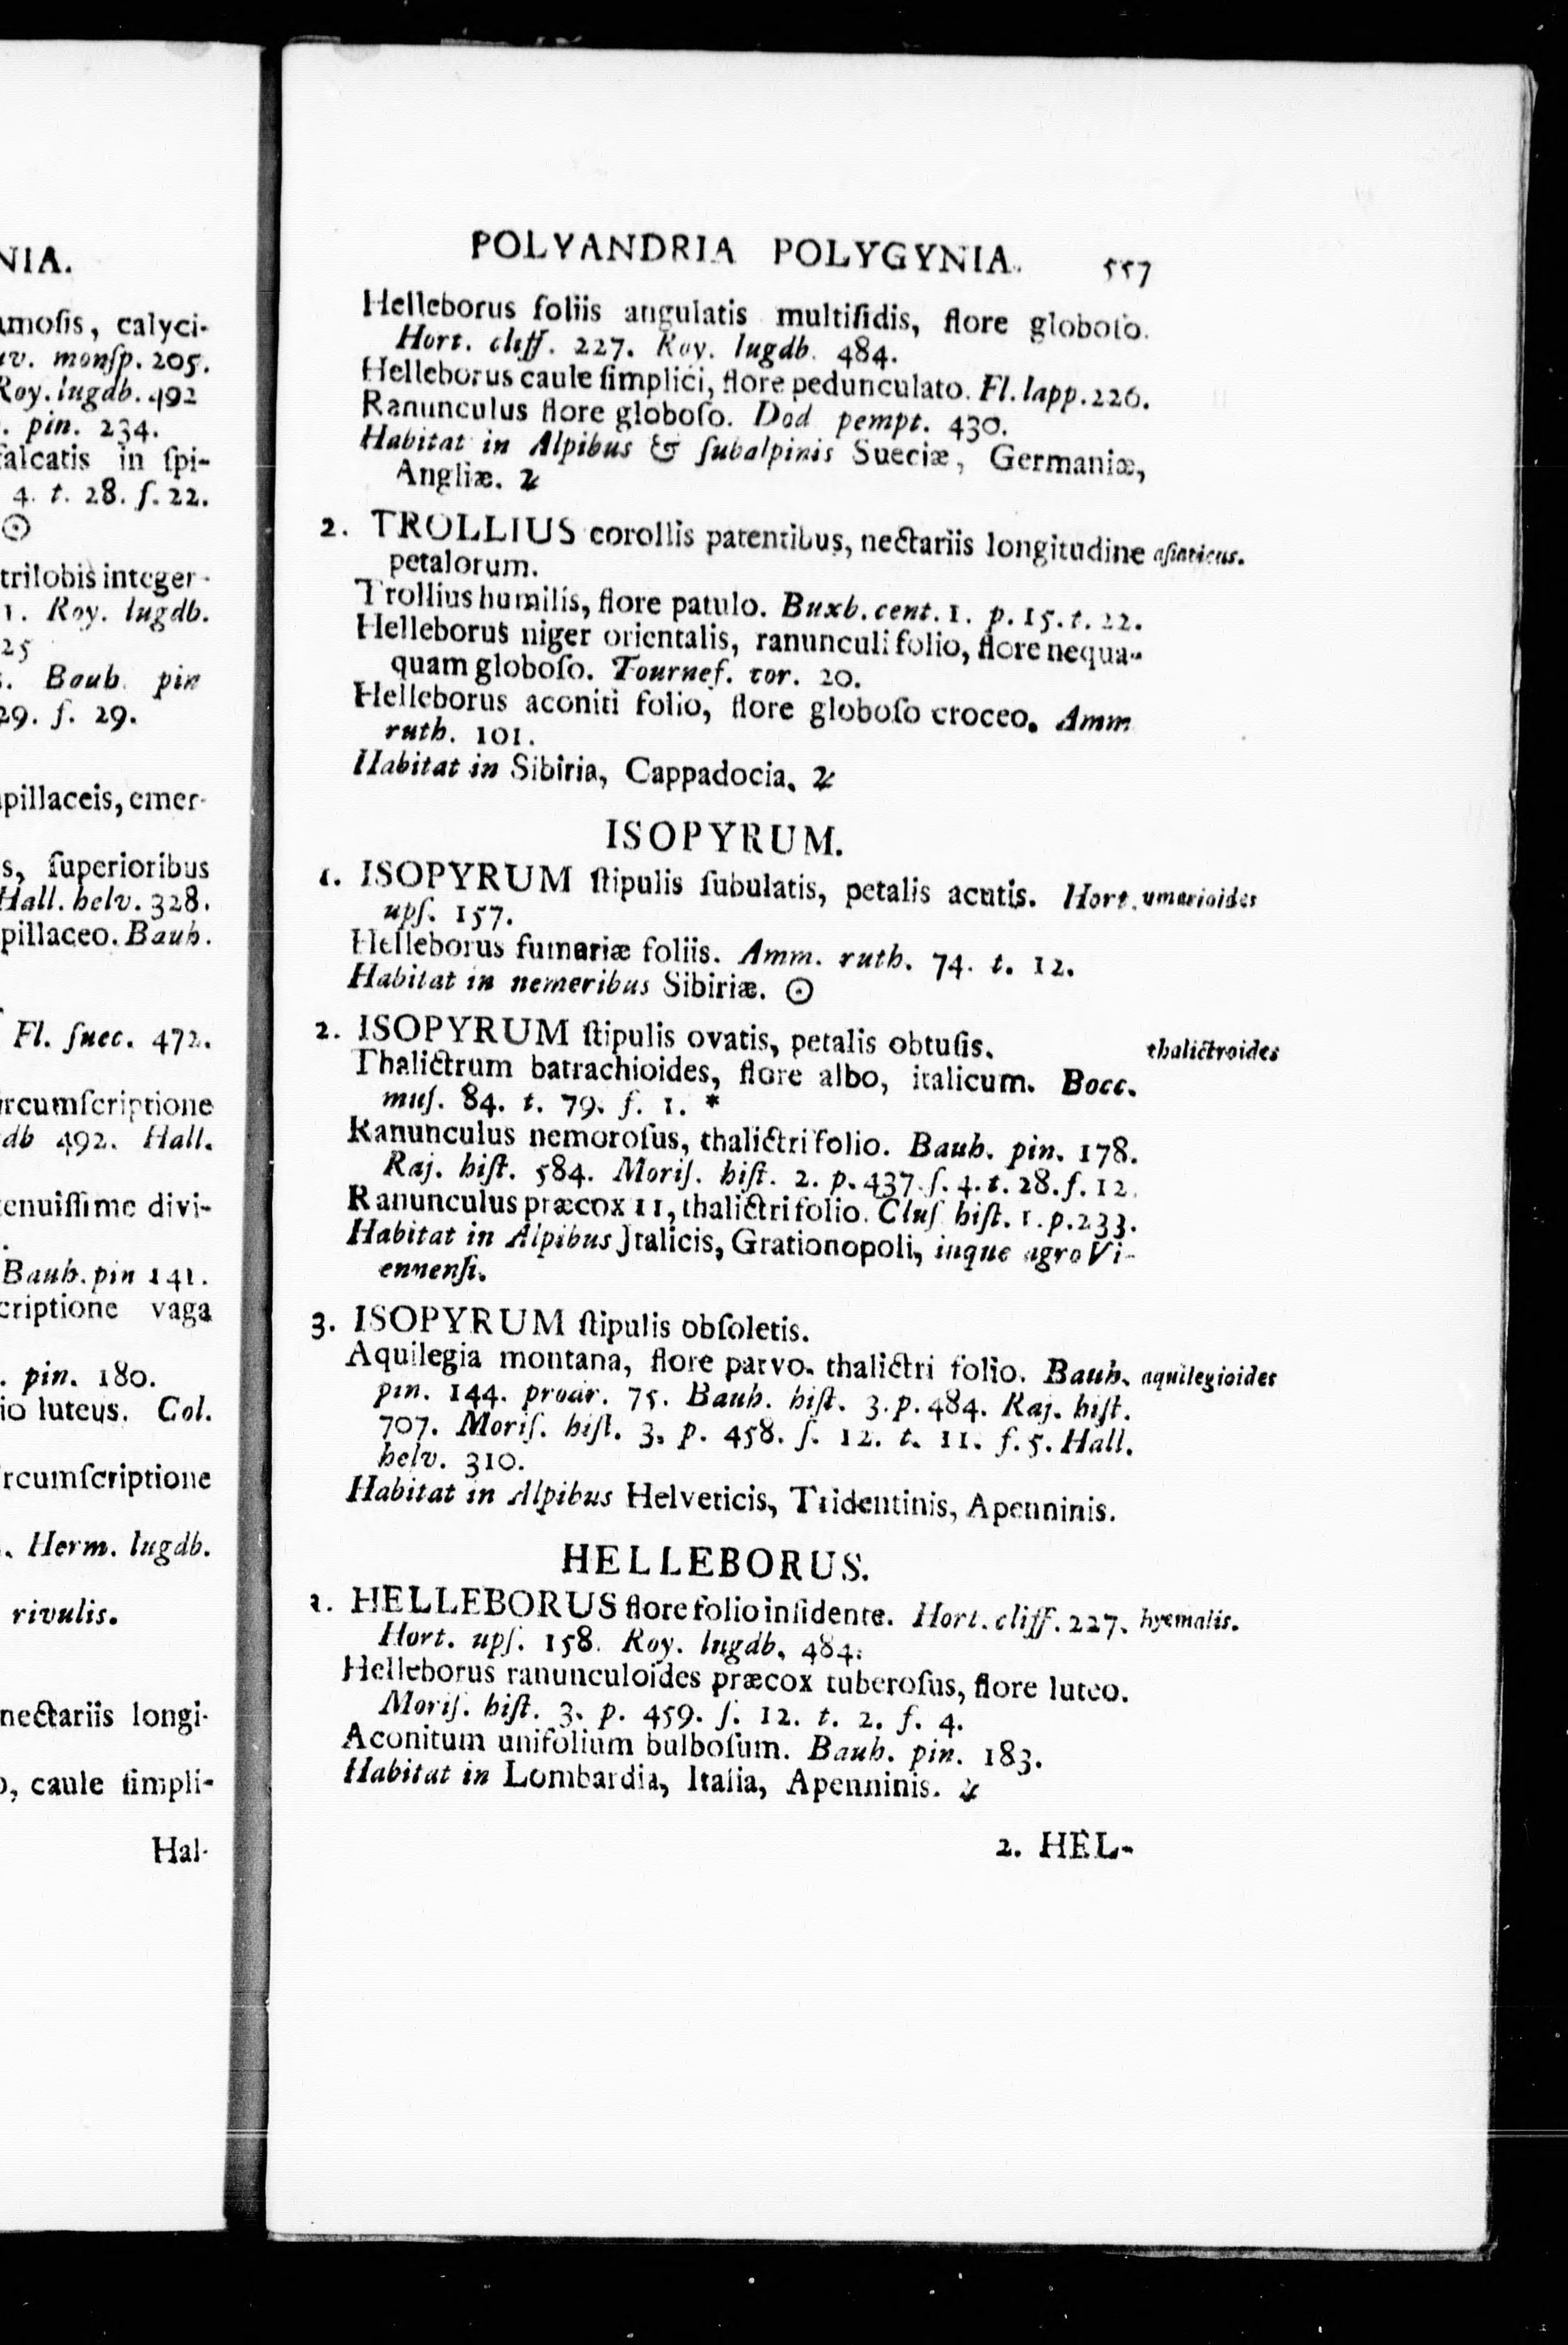 NIA.
amoſis, calyci-
uv. monſp. 205.
Roy. lugdb. 492
. pin. 234.
falcatis in ſpi-
4. t. 28. ſ. 22.
☉
trilobis integer-
1. Roy. lugdb.
25
. Bauh. pin
29. ſ. 29.
pillaceis, emer-
s, ſuperioribus
Hall. helv. 328.
pillaceo. Bauh.
Fl. ſuec. 472.
ircumſcriptione
db 492. Hall.
tenuiſſime divi-
.
Bauh. pin 141.
criptione vaga
. pin. 180.
io luteus. Col.
rcumſcriptione
. Herm. lugdb.
rivulis.
nectariis longi-
o, caule ſimpli-
Hal-
POLYANDRIA POLYGYNIA. 557
Helleborus foliis angulatis multifidis, flore globoſo.
Hort. cliff. 227. Roy. lugdb. 484.
Helleborus caule ſimplici, flore pedunculato. Fl. lapp. 226.
Ranunculus flore globoſo. Dod pempt. 430.
Habitat in Alpibus & ſubalpinis Sueciæ, Germaniæ,
Angliæ. ♃
2. TROLLIUS corollis patentibus, nectariis longitudine aſiaticus.
petalorum.
Trollius humilis, flore patulo. Buxb. cent. 1. p. 15. t. 22.
Helleborus niger orientalis, ranunculi folio, flore nequa-
quam globoſo. Tournef. cor. 20.
Helleborus aconiti folio, flore globoſo croceo. Amm
ruth. 101.
Habitat in Sibiria, Cappadocia. ♃
ISOPYRUM.
1. ISOPYRUM ſtipulis ſubulatis, petalis acutis. Hort. umarioides
upſ. 157.
Helleborus fumariæ foliis. Amm. ruth. 74. t. 12.
Habitat in nemeribus Sibiriæ. ☉
2. ISOPYRUM ſtipulis ovatis, petalis obtuſis. thalictroides
Thalictrum batrachioides, flore albo, italicum. Bocc.
muſ. 84. t. 79. f. 1. *
Ranunculus nemoroſus, thalictri folio. Bauh. pin. 178.
Raj. hiſt. 584. Moriſ. hiſt. 2. p. 437. ſ. 4. t. 28. f. 12.
Ranunculus præcox 11, thalictri folio. Cluſ hiſt. 1. p. 233.
Habitat in Alpibus Italicis, Grationopoli, inque agro Vi-
ennenſi.
3. ISOPYRUM ſtipulis obſoletis.
Aquilegia montana, flore parvo. thalictri folio. Bauh. aquilegioides
pin. 144. prodr. 75. Bauh. hiſt. 3. p. 484. Raj. hiſt.
707. Moriſ. hiſt. 3. p. 458. ſ. 12. t. 11. f. 5. Hall.
helv. 310.
Habitat in Alpibus Helveticis, Tridentinis, Apenninis.
HELLEBORUS.
1. HELLEBORUS flore folio inſidente. Hort. cliff. 227. hyemalis.
Hort. upſ. 158. Roy. lugdb. 484.
Helleborus ranunculoides præcox tuberoſus, flore luteo.
Moriſ. hiſt. 3. p. 459. ſ. 12. t. 2. f. 4.
Aconitum unifolium bulboſum. Bauh. pin. 183.
Habitat in Lombardia, Italia, Apenninis. ♃
2. HEL-